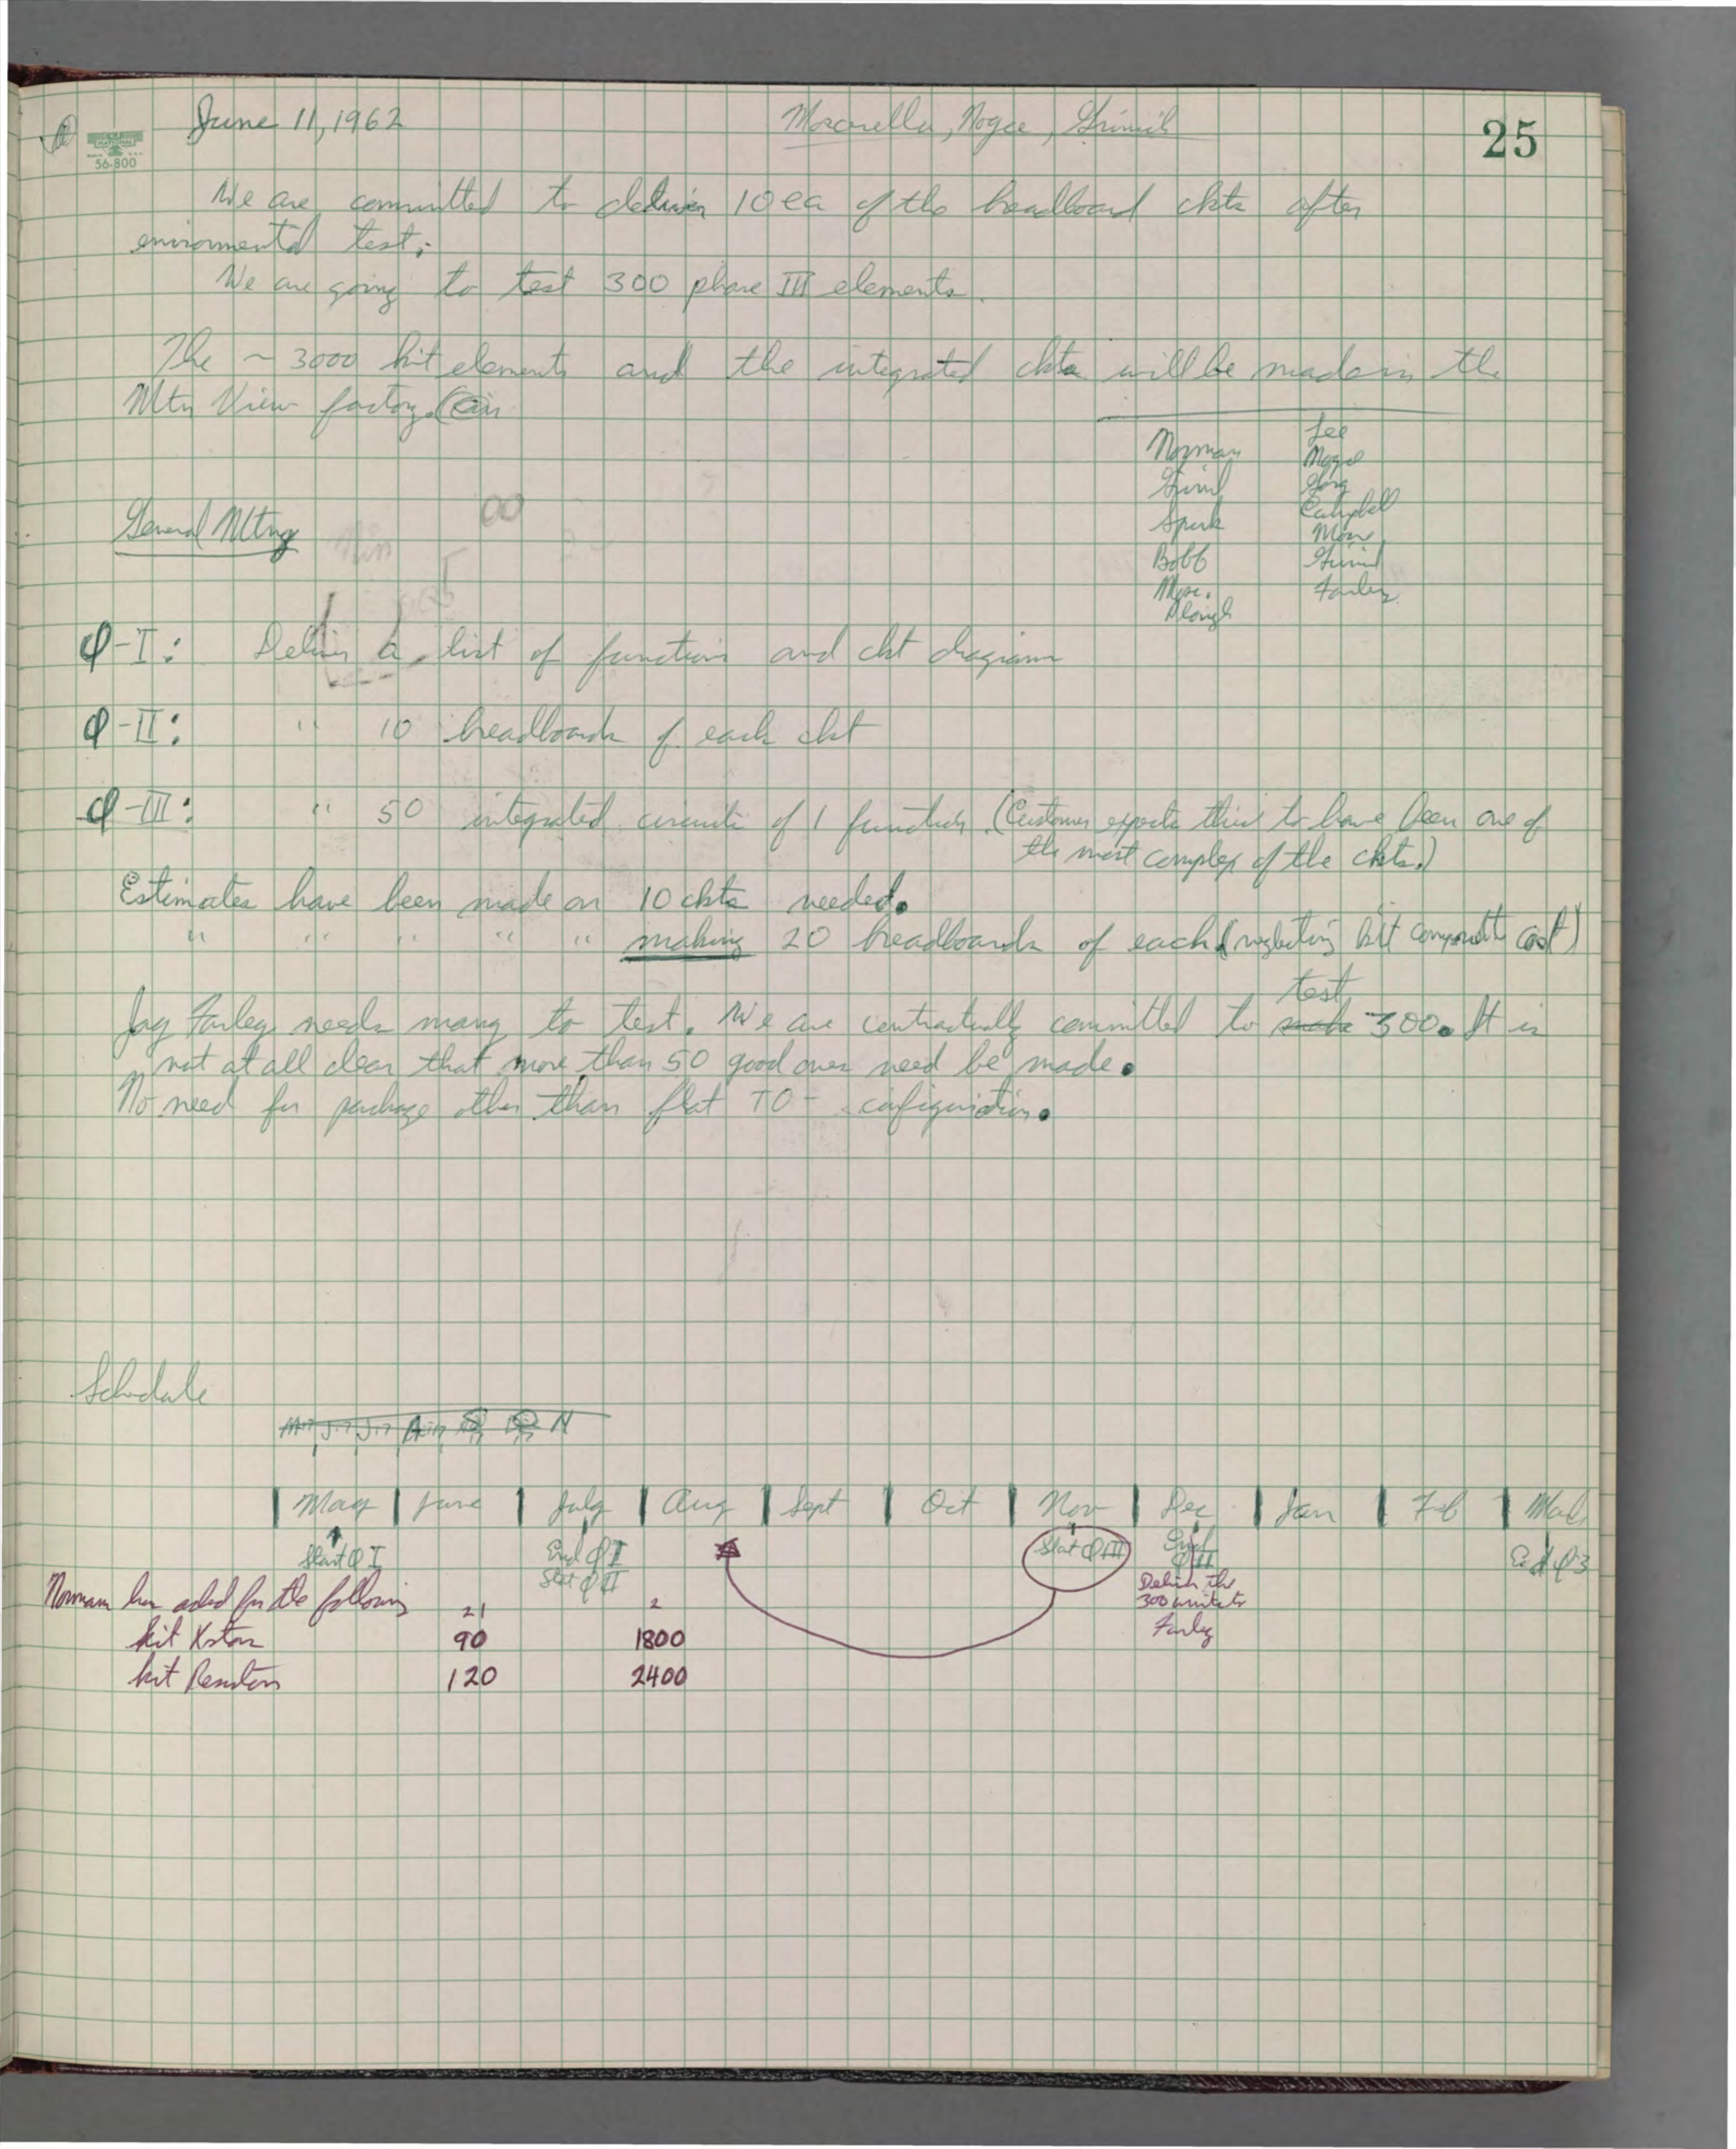 June 11, 1962
25
NATIONAL
56-800
We are committed to deliver 10 ea of the breadboard ckts after
enviormental test.
We are going to test 300 phase III elements.
The ~ 3000 kit elements and the integrated ckts will be made in the
Mtn View factory.
Norman
Lee
Grinich
Campbell
Bobb
Farley
General Mtng
φ-I: Deliver a list of functions and ckt diagrams
φ-II: " 10 breadboards of each ckt
φ-III: " 50 integrated circuits of 1 function. (Customer expects this to have been one of
the most complex of the ckts.)
Estimates have been made on 10 ckts needed.
" " " " " making 20 breadboards of each (neglecting kit components cost)
test
Jay Farley needs many to test. We are contractually committed to make 300. It is
not at all clear that more than 50 good ones need be made.
No need for package other than flat TO- configuration.
Schedule
May June July Aug Sept Oct Nov Dec Jan Feb
Start φ I
End φ I
Start φ II
Start φ III
End φ II
End φ 3
Deliver the
300 units to
Farley
Norman has asked for the following
21 2
kit Xstors 90 1800
kit Resistors 120 2400